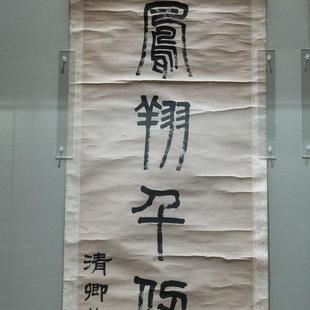 鳳翔千仞
清卿